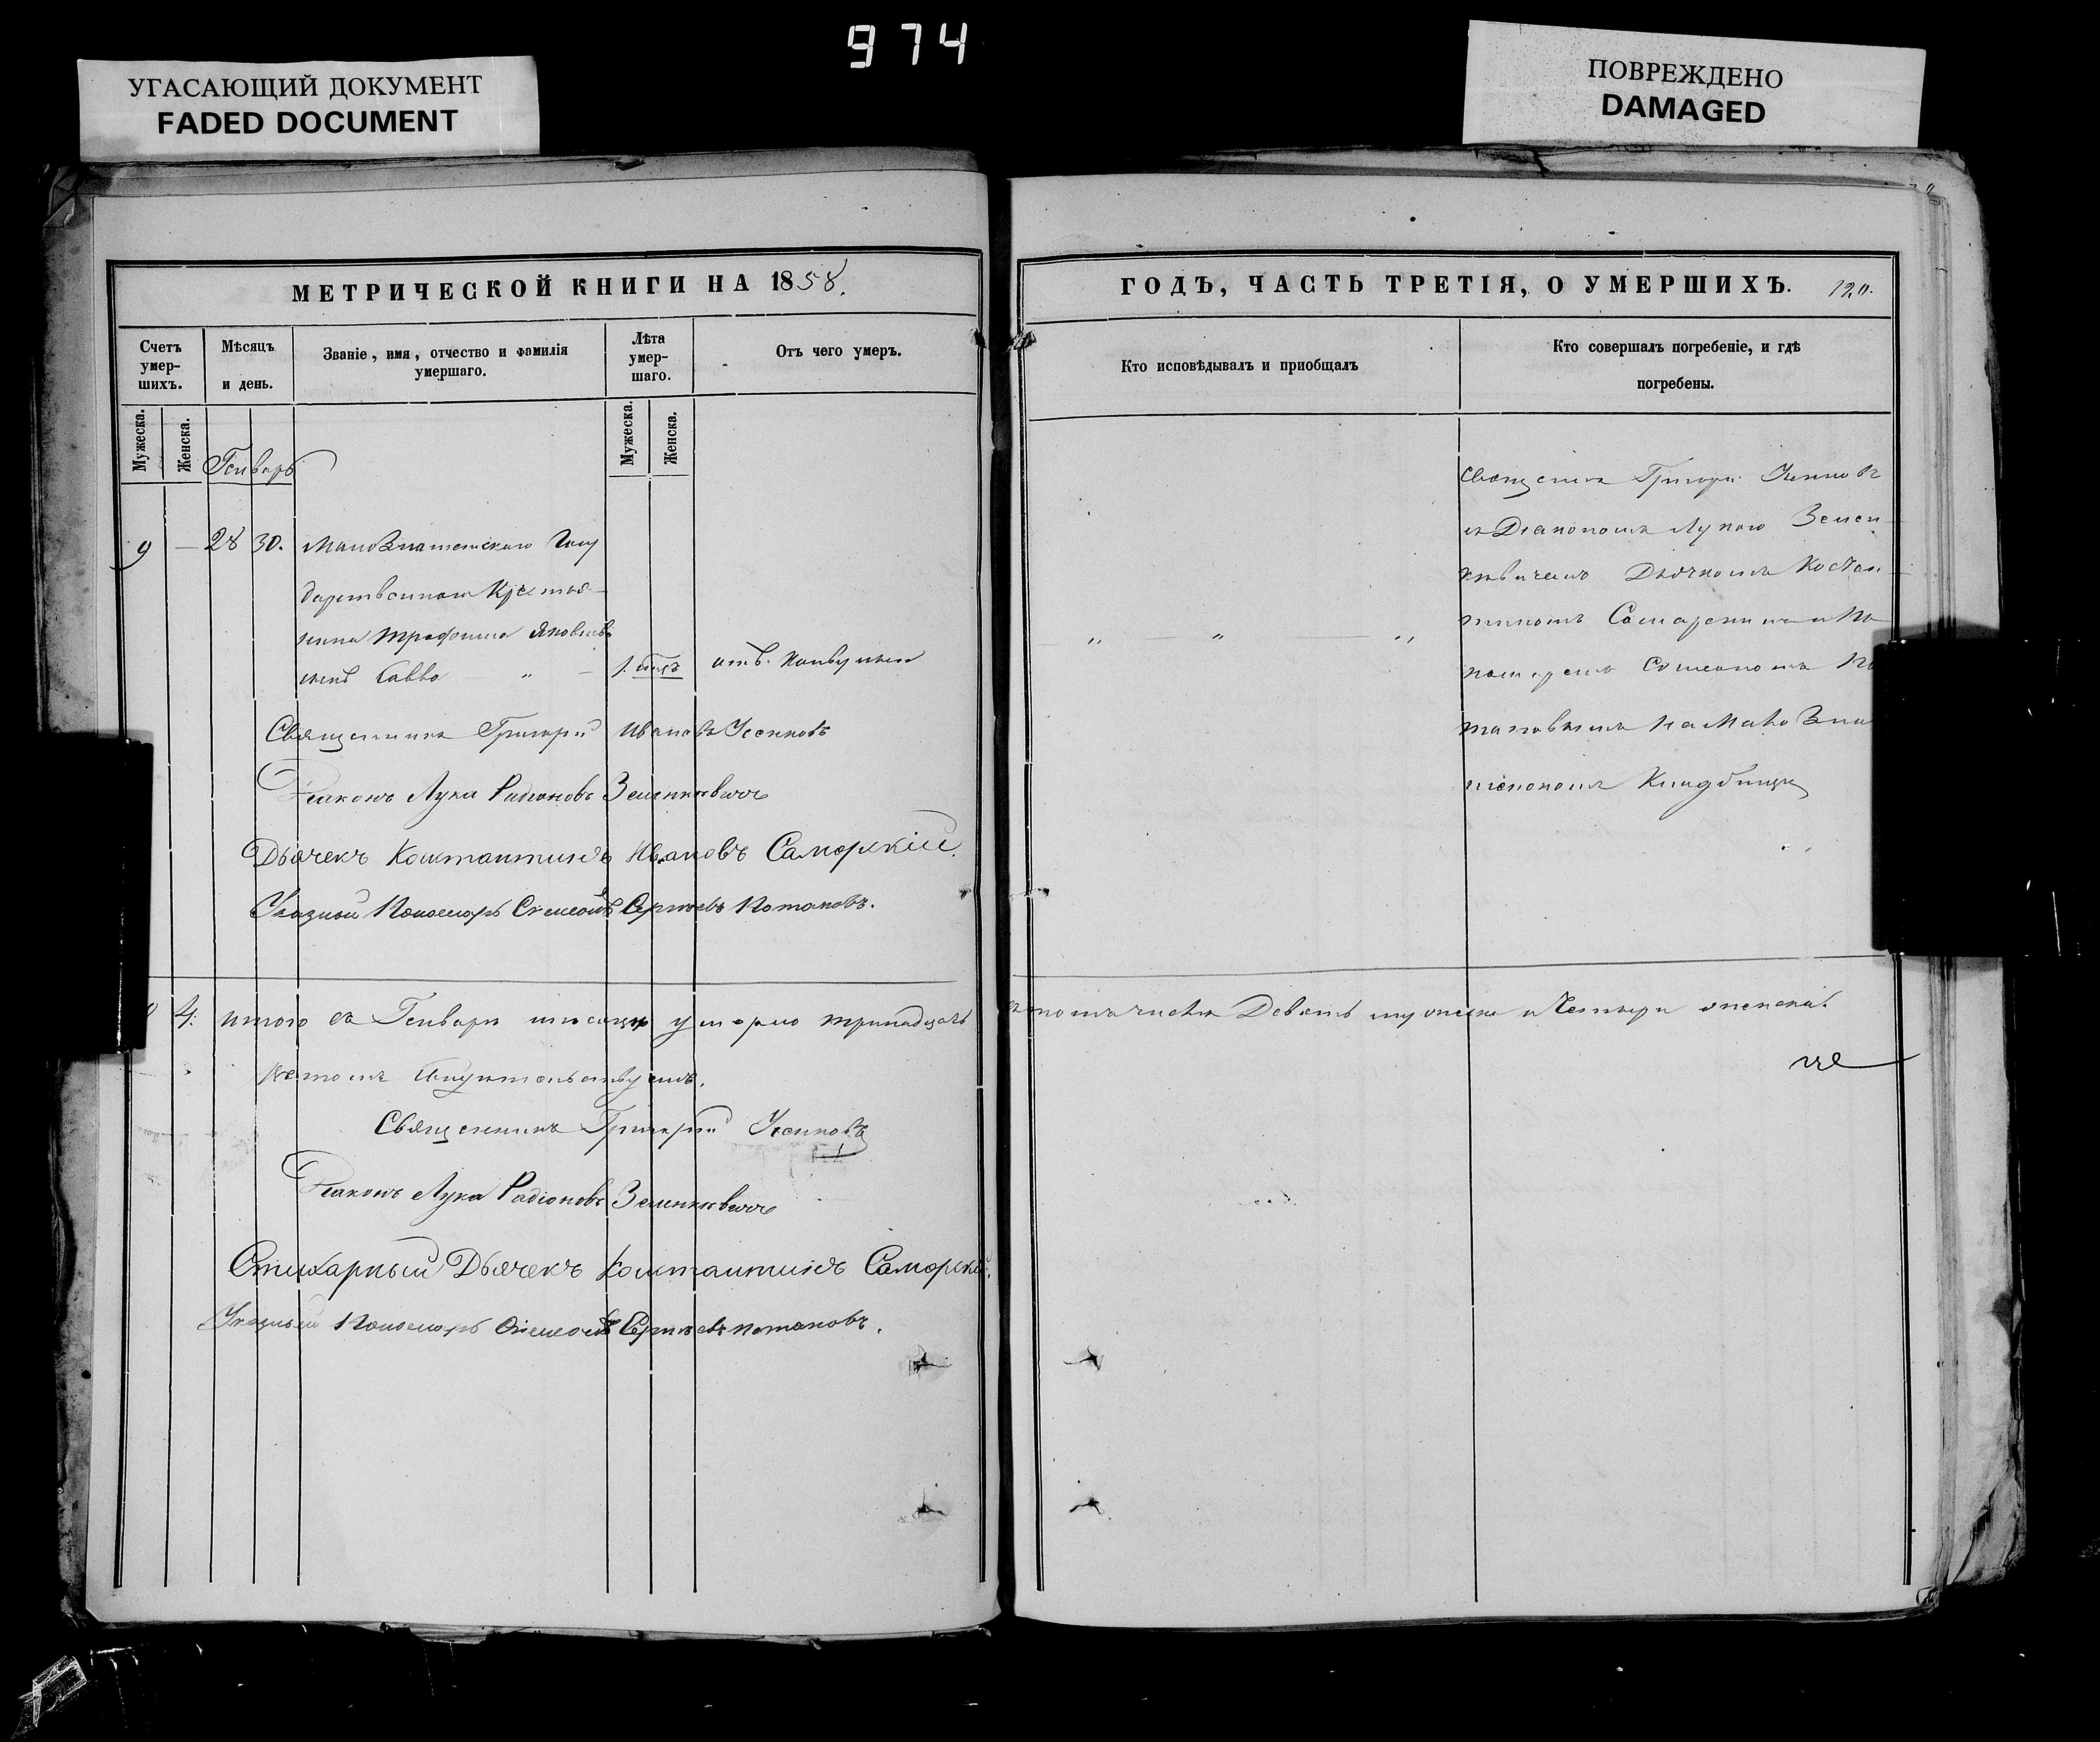 974
УГАСАЮЩИЙ ДОКУМЕНТ
FADED DOCUMENT
ПОВРЕЖДЕНО
DAMAGED
МЕТРИЧЕСКОЙ КНИГИ НА 1858.
Счетъ умер-шихъ.
Мѣсяцъ и день.
Званіе, имя, отчество и фамилія умершаго.
Лѣта умер-шаго.
Отъ чего умеръ.
Мужеска.
Женска.
Мужеска.
Женска.
Генварь
9 — 28 30.
Госу
дарственнаго Крестья-
нина Трофима Яковлева
сынъ Савва " — 1.
Священникъ Григорій Ивановъ Усенковъ
Діаконъ Лука Радіоновъ Земенкевичъ
Дьячекъ Константинъ Ивановъ Саморскій.
Указный Пономарь Сѵмеонъ Сергѣевъ Потаповъ.
4. Итого въ Генварѣ мѣсяцѣ умерло тринадцать
Въ томъ свидѣтельствуемъ.
Священникъ Григорій Усенковъ
Діаконъ Лука Радіоновъ Земенкевичъ
Стихарный Дьячекъ Константинъ Саморскій.
Указный Пономарь Сѵмеонъ Сергѣевъ Потаповъ.
ГОДЪ, ЧАСТЬ ТРЕТІЯ, О УМЕРШИХЪ. 120.
Кто исповѣдывалъ и пріобщалъ
Кто совершалъ погребеніе, и гдѣ погребены.
" — " — "
Священникъ Григорій Усенковъ
съ Діакономъ Лукою Земен-
кевичемъ Дьячкомъ Констан-
тиномъ Саморскимъ и По
номаремъ Сѵмеономъ По
таповымъ на
Кладбищѣ
томъ числѣ Девять мужеска и Четыри женска.